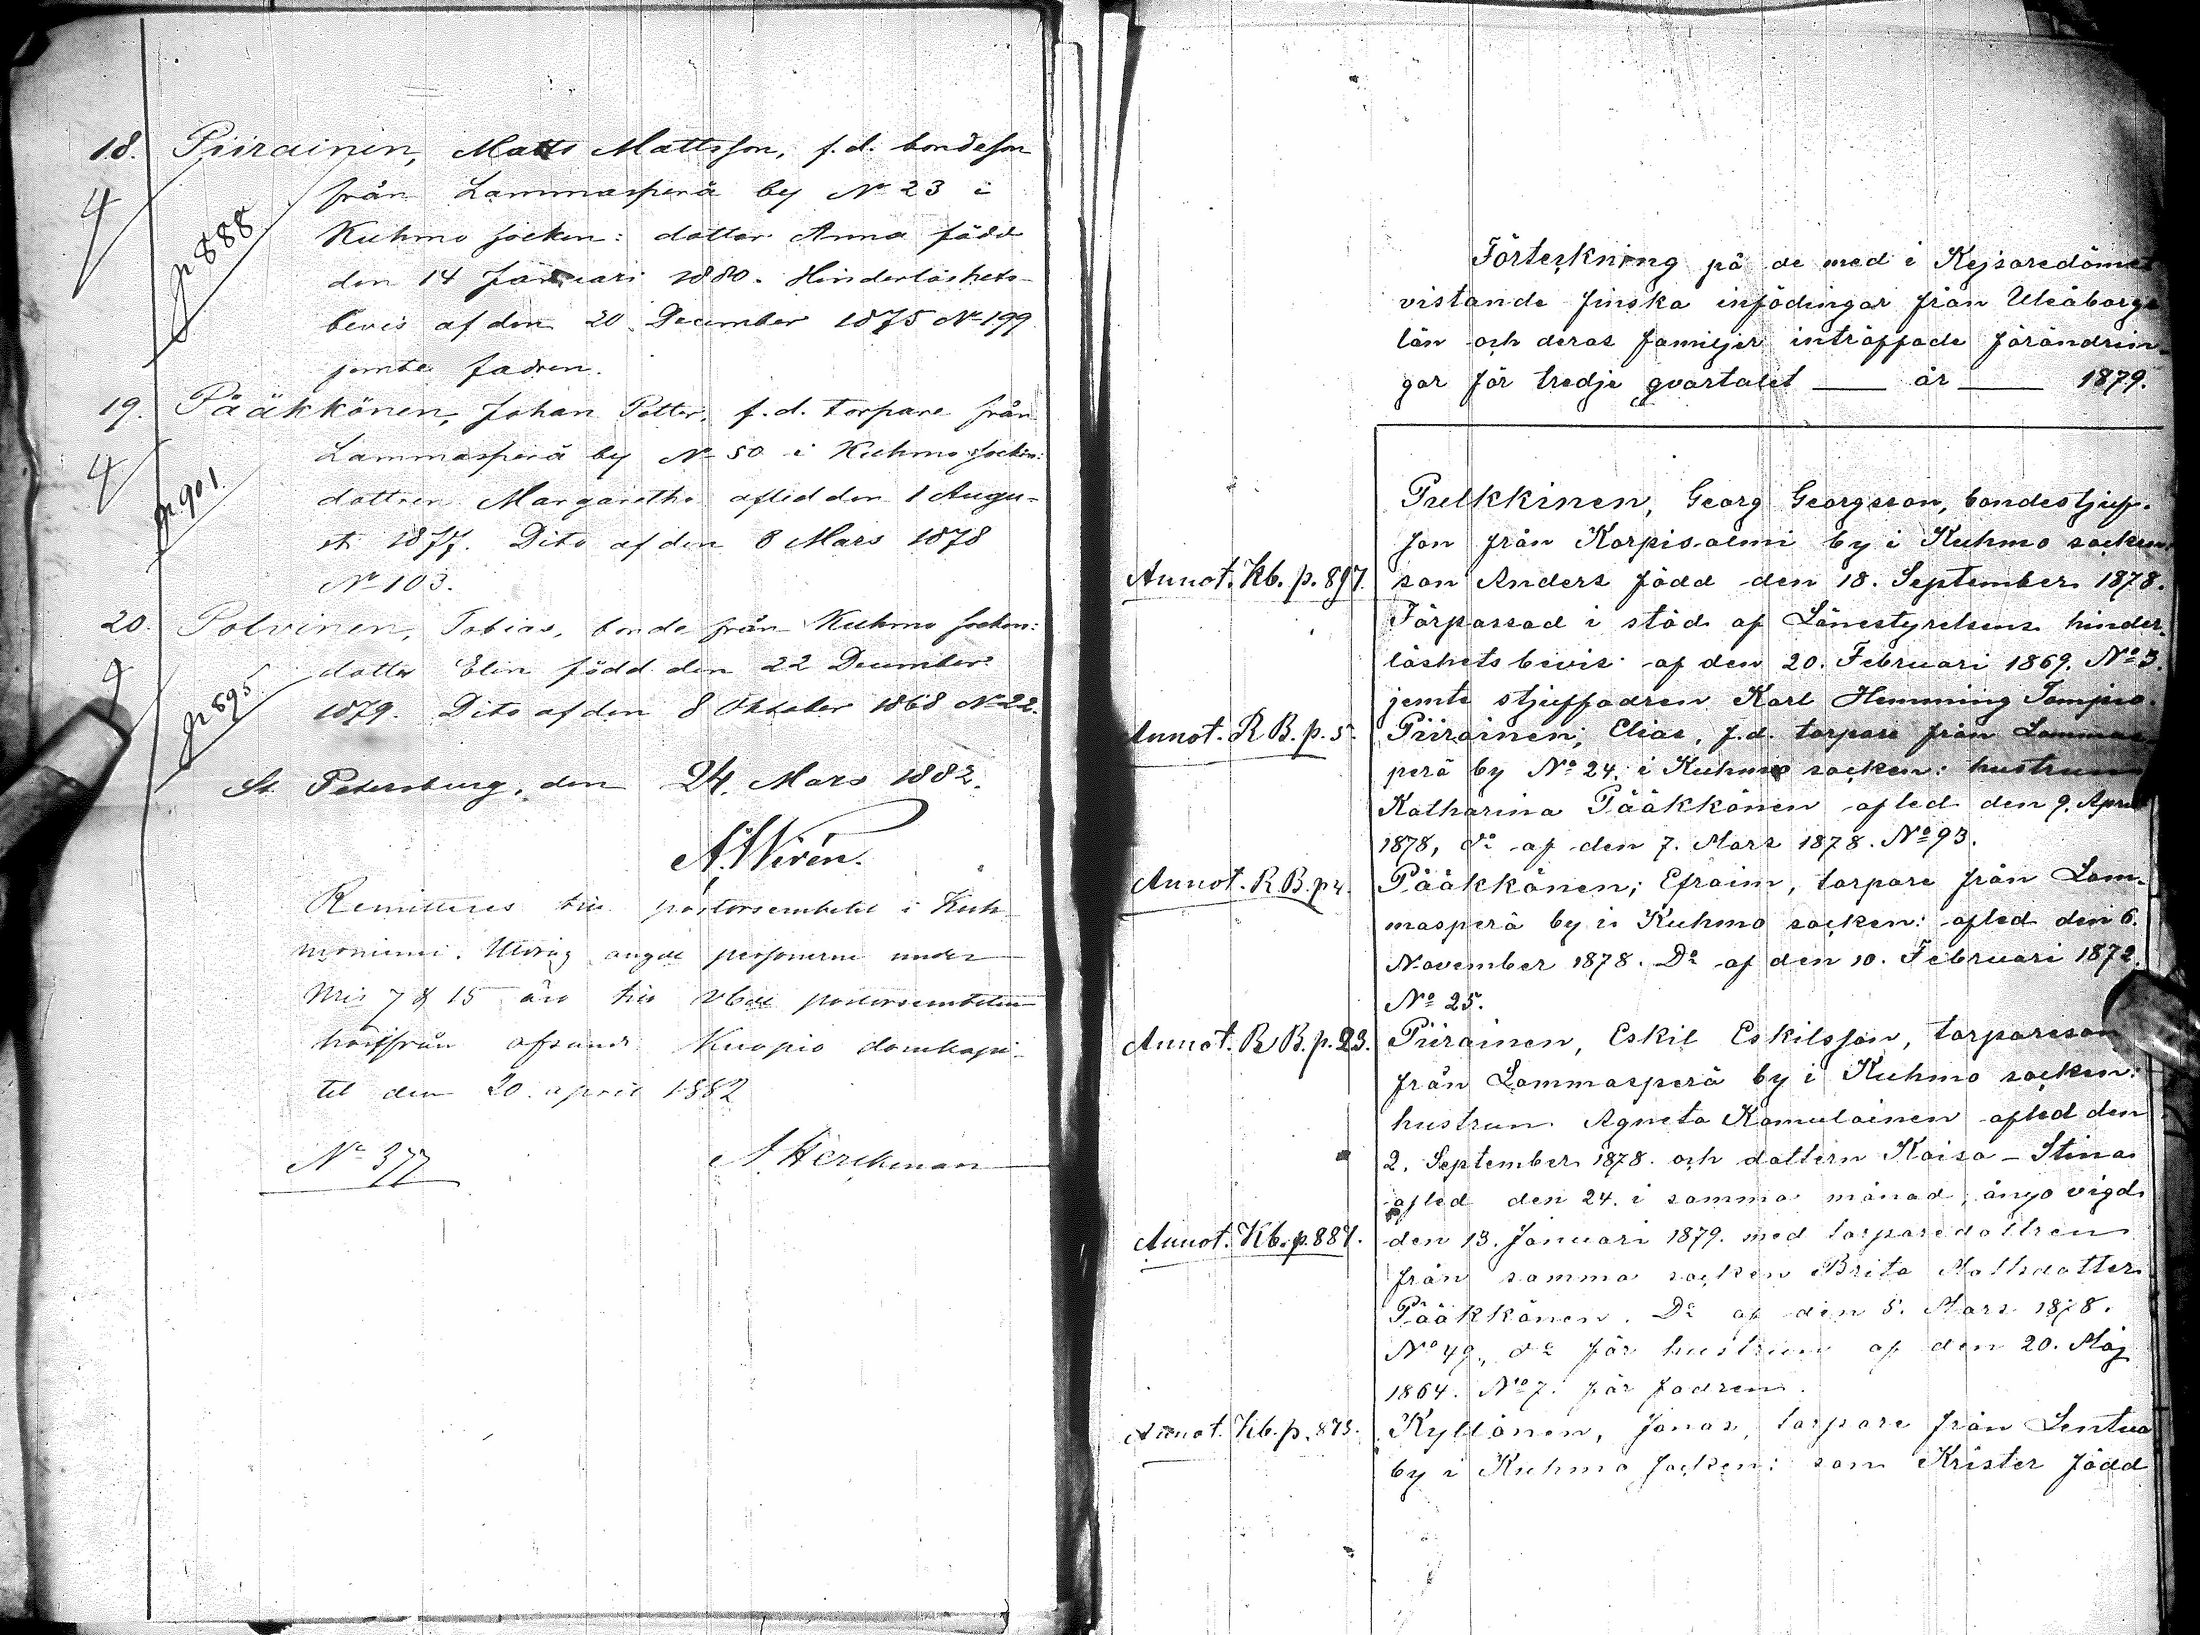 18. Piirainen, Matts Mattsson, f.d. bondeson
4 från Lammasperä by No 23 i
p 888 Kuhmo socken: dotter Anna född
den 14 Januari 1880. Hinderlöshets-
bevis af den 20 December 1875 No 199
jemte fadren.
19. Pääkkönen, Johan Petter, f.d. torpare från
4 Lammasperä by No 50 i Kuhmo socken:
p 901. dottren Margaretha afled den 1 Augu-
sti 1877. Dito af den 8 Mars 1878
No 103.
20. Polvinen, Tobias, bonde från Kuhmo socken:
4 dotter Elin född den 22 December
p 895 1879. Dito af den 8 Oktober 1868 No 22.
St Petersburg, den 24. Mars 1882.
A. Wirén.
Remitteres till pastorsembetet i Kuh-
moniemi. Utdrag angde personerne under
Nris 7 & 15 äro till vbde pastorsembeten
härifrån afsände. Kuopio domkapi-
tel den 20 april 1882
No 377 A. Herckman
Förteckning på de med i Kejsaredömet
vistande finska infödingar från Uleåborgs
län och deras familjer inträffade förändrin-
gar för tredje qvartalet — år — 1879.
Pulkkinen, Georg Georgsson, bondestjuf-
son från Korpisalmi by i Kuhmo socken:
Annot. Kb. p. 897. son Anders född den 18. September 1878.
Förpassad i stöd af Länestyrelsens hinder-
löshetsbevis af den 20. Februari 1869. No 3.
jemte stjuffadren Karl Hemming Tampio.
Annot. R B. p. 5. Piirainen, Elias, f.d. torpare från Lammas-
perä by No 24. i Kuhmo socken: hustrun
Katharina Pääkkönen afled den 9. April
1878, do af den 7. Mars 1878. No 93.
Annot. R B. p 4. Pääkkönen, Efraim, torpare från Lam-
masperä by i Kuhmo socken: afled den 6.
November 1878. Do af den 10. Februari 1872.
No 25.
Annot. R B. p. 23. Piirainen, Eskil Eskilsson, torpareson
från Lammasperä by i Kuhmo socken:
hustrun Agneta Komulainen afled den
2. September 1878. och dottern Kaisa-Stina
afled den 24. i samma månad, ånyo vigd
Annot. Kb. p. 887. den 13. Januari 1879. med torparedottren
från samma socken Brita Mattsdotter
Pääkkönen. Do af den 5. Mars 1878.
No 49., do för hustrun af den 20. Maj
1864. No 7. för fadren.
Annot. Kb. p. 873. Kyllönen, Jonas, torpare från Lentua
by i Kuhmo socken: son Krister född